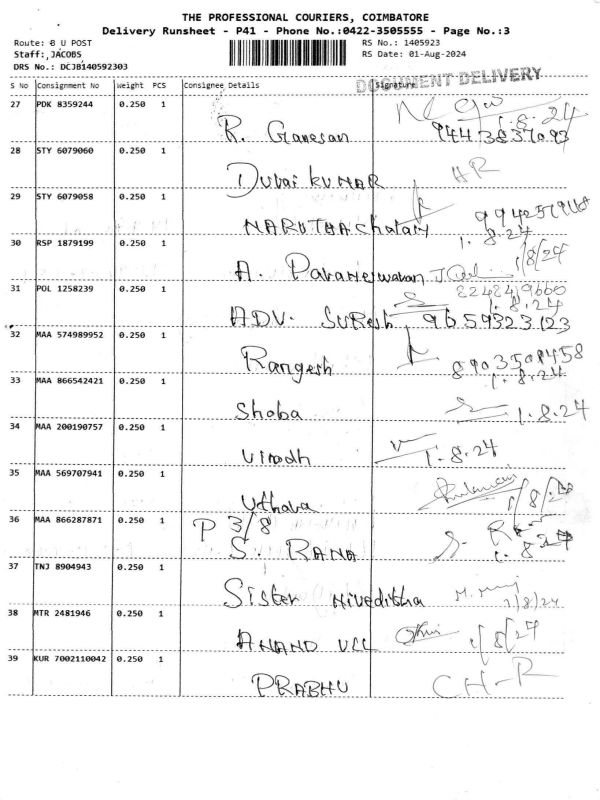 THE PROFESSIONAL COURIERS, COIMBATORE
Delivery Runsheet - P41 - Phone No.:0422-3505555 - Page No.:3
Route: B U POST
RS No.: 1405923
Staff: JACOBS
RS Date: 01-Aug-2024
DRS No.: DCJB140592303
DOCUMENT DELIVERY
S No Consignment No Weight PCS Consignee Details Signature
27 PDK 8359244 0.250 1
1.8.24
R. Ganesan 9443837093
28 STY 6079060 0.250 1
Durai KUMAR HR
29 STY 6079058 0.250 1
MARUTHAchalam
1.8.24
30 RSP 1879199 0.250 1
1/8/24
A. Parameswaran
31 POL 1258239 0.250 1
8242419660
1.8.24
ADV. SUResh 9659323123
32 MAA 574989952 0.250 1
Rangesh 8903508458
1.8.24
33 MAA 866542421 0.250 1
Shoba 1.8.24
34 MAA 200190757 0.250 1
Vinodh 1.8.24
35 MAA 569707941 0.250 1
Uthara 1/8/24
36 MAA 866287871 0.250 1
P 3/8
S. RANA 1.8.24
37 TNJ 8904943 0.250 1
Sister Niveditha 1/8/24
38 MTR 2481946 0.250 1
ANAND VLL 1/8/24
39 KUR 7002110042 0.250 1
PRABHU CH-R